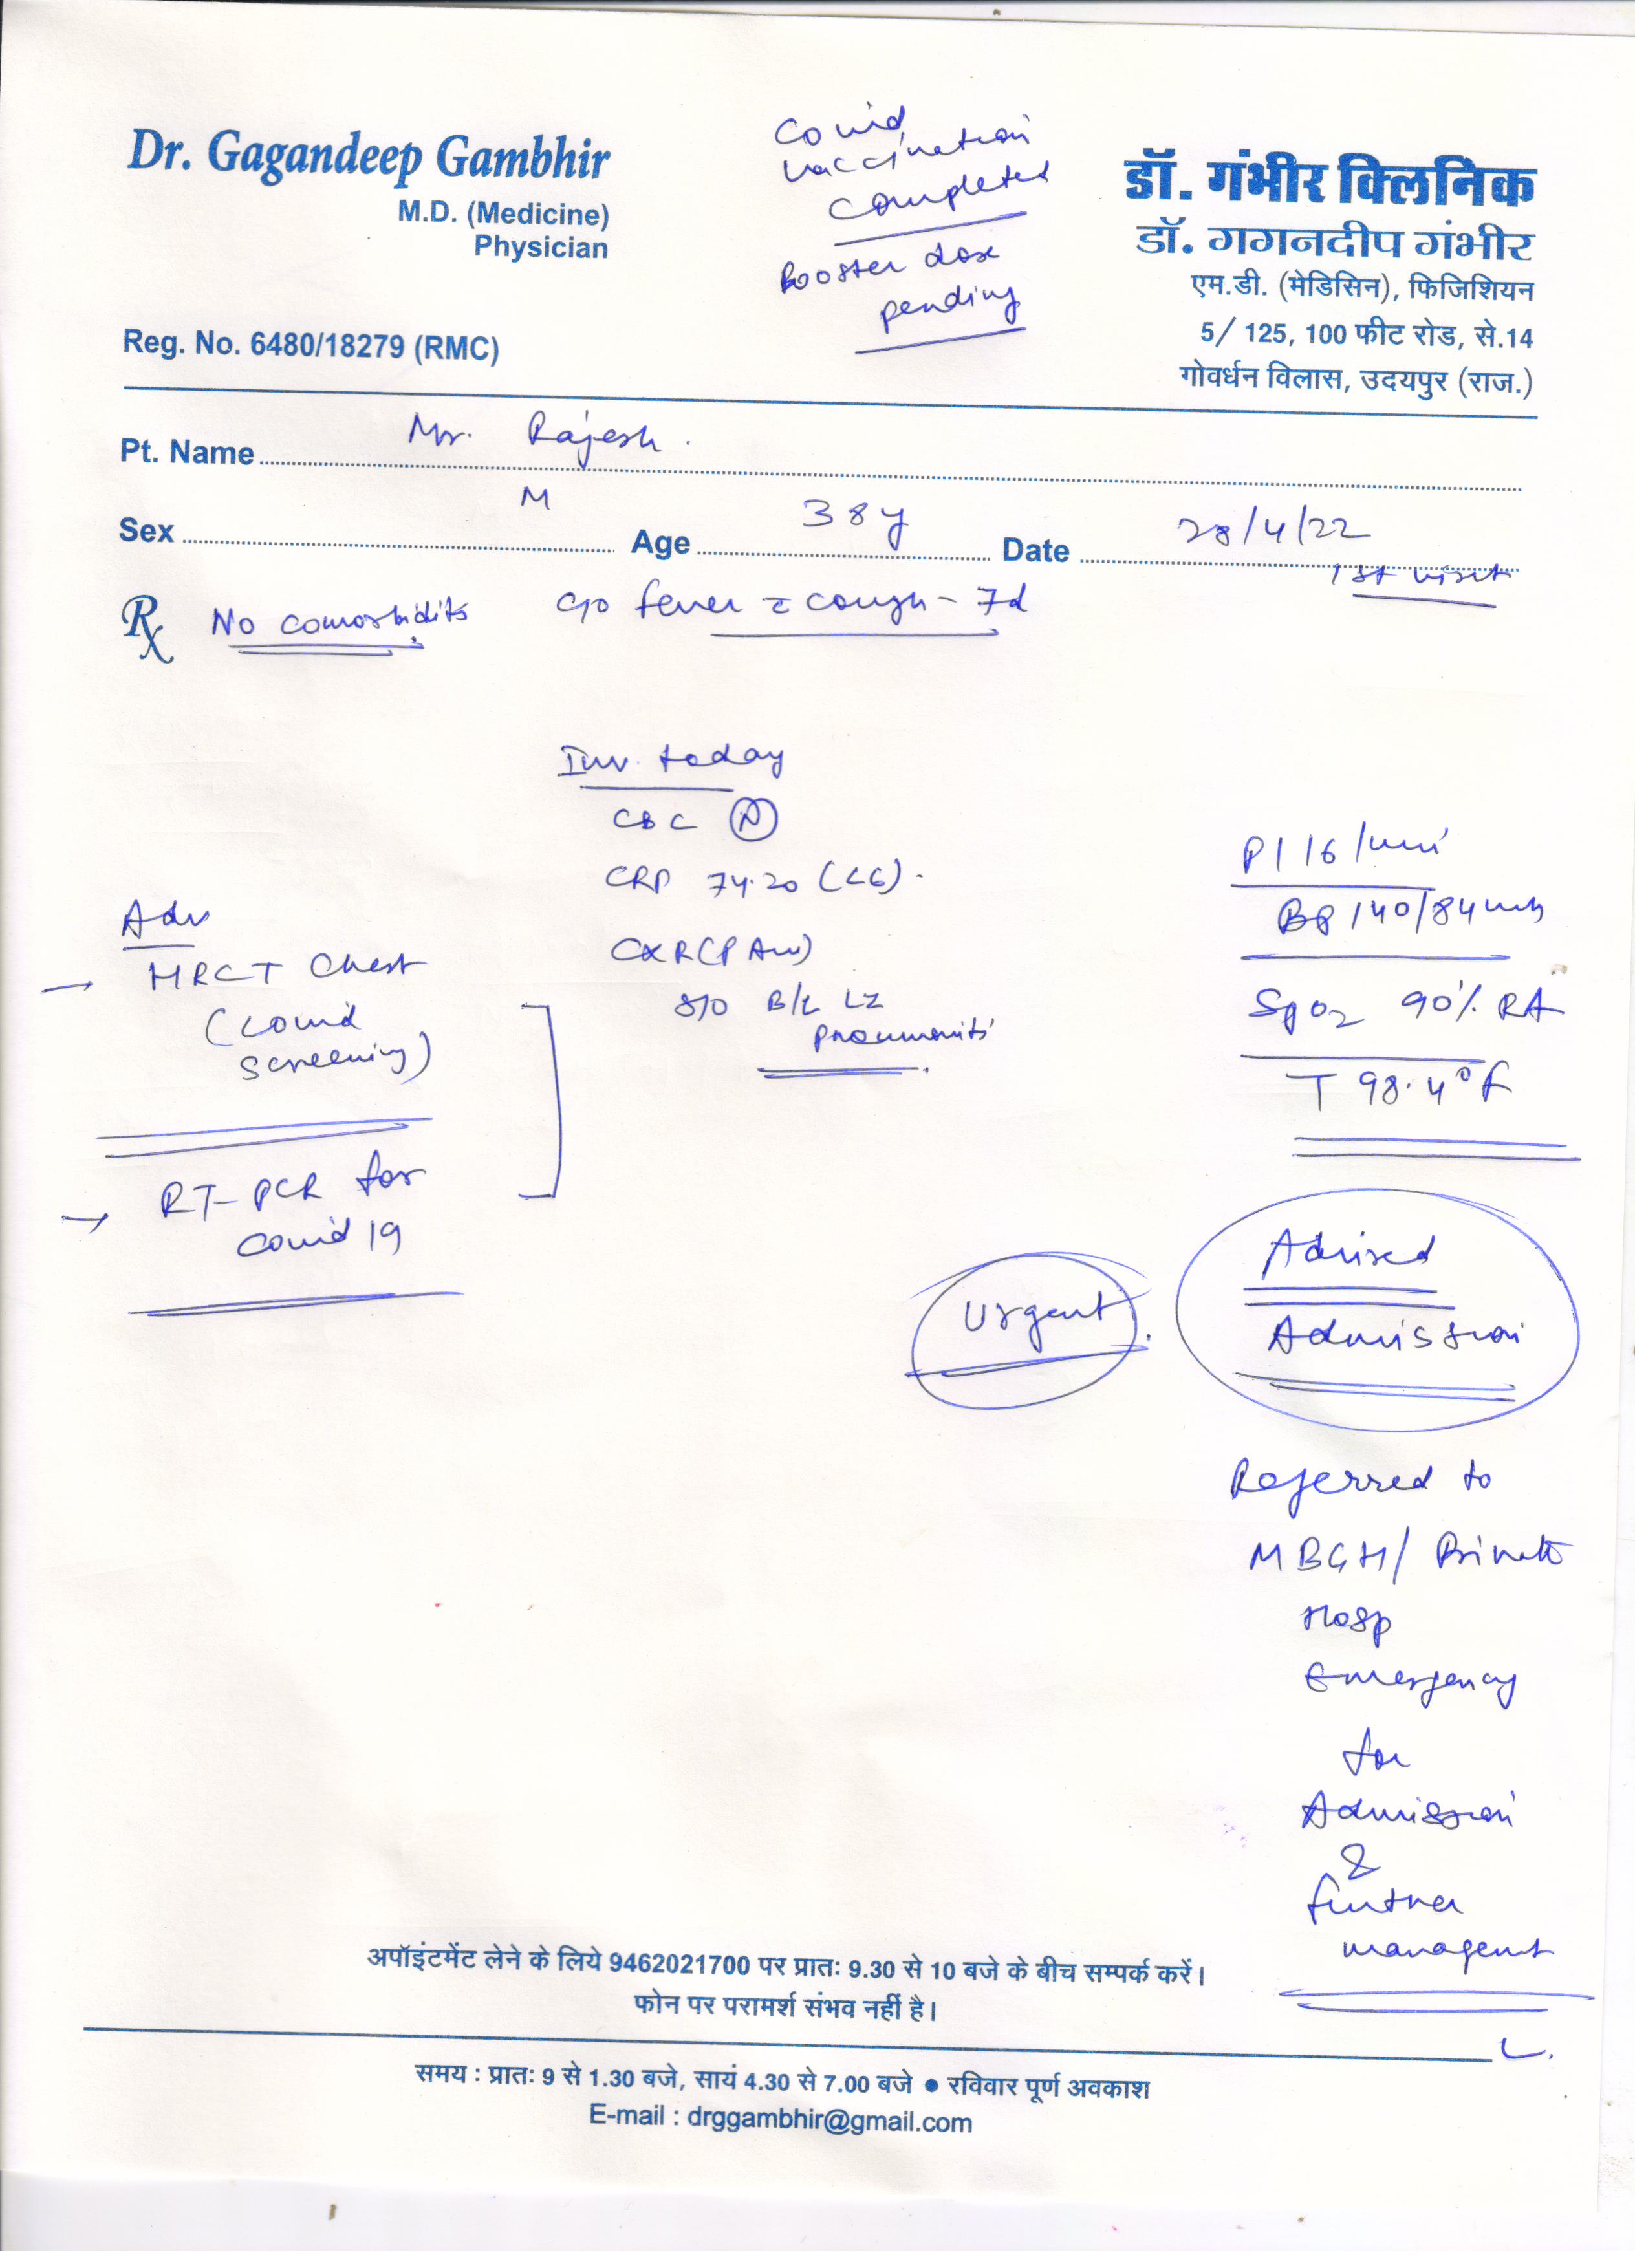 Dr. Gagandeep Gambhir
M.D. (Medicine)
Physician
Reg. No. 6480/18279 (RMC)
Covid
vaccination
completed
Booster dose
pending
डॉ. गंभीर क्लिनिक
डॉ. गगनदीप गंभीर
एम.डी. (मेडिसिन), फिजिशियन
5/ 125, 100 फीट रोड, से.14
गोवर्धन विलास, उदयपुर (राज.)
Pt. Name Mr. Rajesh.
Sex M Age 38y Date 28/4/22
1st visit
Rx No comorbidits c/o fever c cough - 7d
Inv. today
CBC (N)
CRP 74.20 (<6).
CXR (PA view)
S/O B/L LZ
Pneumonitis
Adv
→ HRCT Chest
(Covid
screening)
→ RT-PCR for
Covid 19
P 116/min
BP 140/84 mmHg
SpO2 90% RA
T 98.4°F
Urgent.
Advised
Admission
Referred to
MBGH/ Private
Hosp
Emergency
for
Admission
&
further
management
अपॉइंटमेंट लेने के लिये 9462021700 पर प्रातः 9.30 से 10 बजे के बीच सम्पर्क करें।
फोन पर परामर्श संभव नहीं है।
समय : प्रातः 9 से 1.30 बजे, सायं 4.30 से 7.00 बजे ● रविवार पूर्ण अवकाश
E-mail : drggambhir@gmail.com